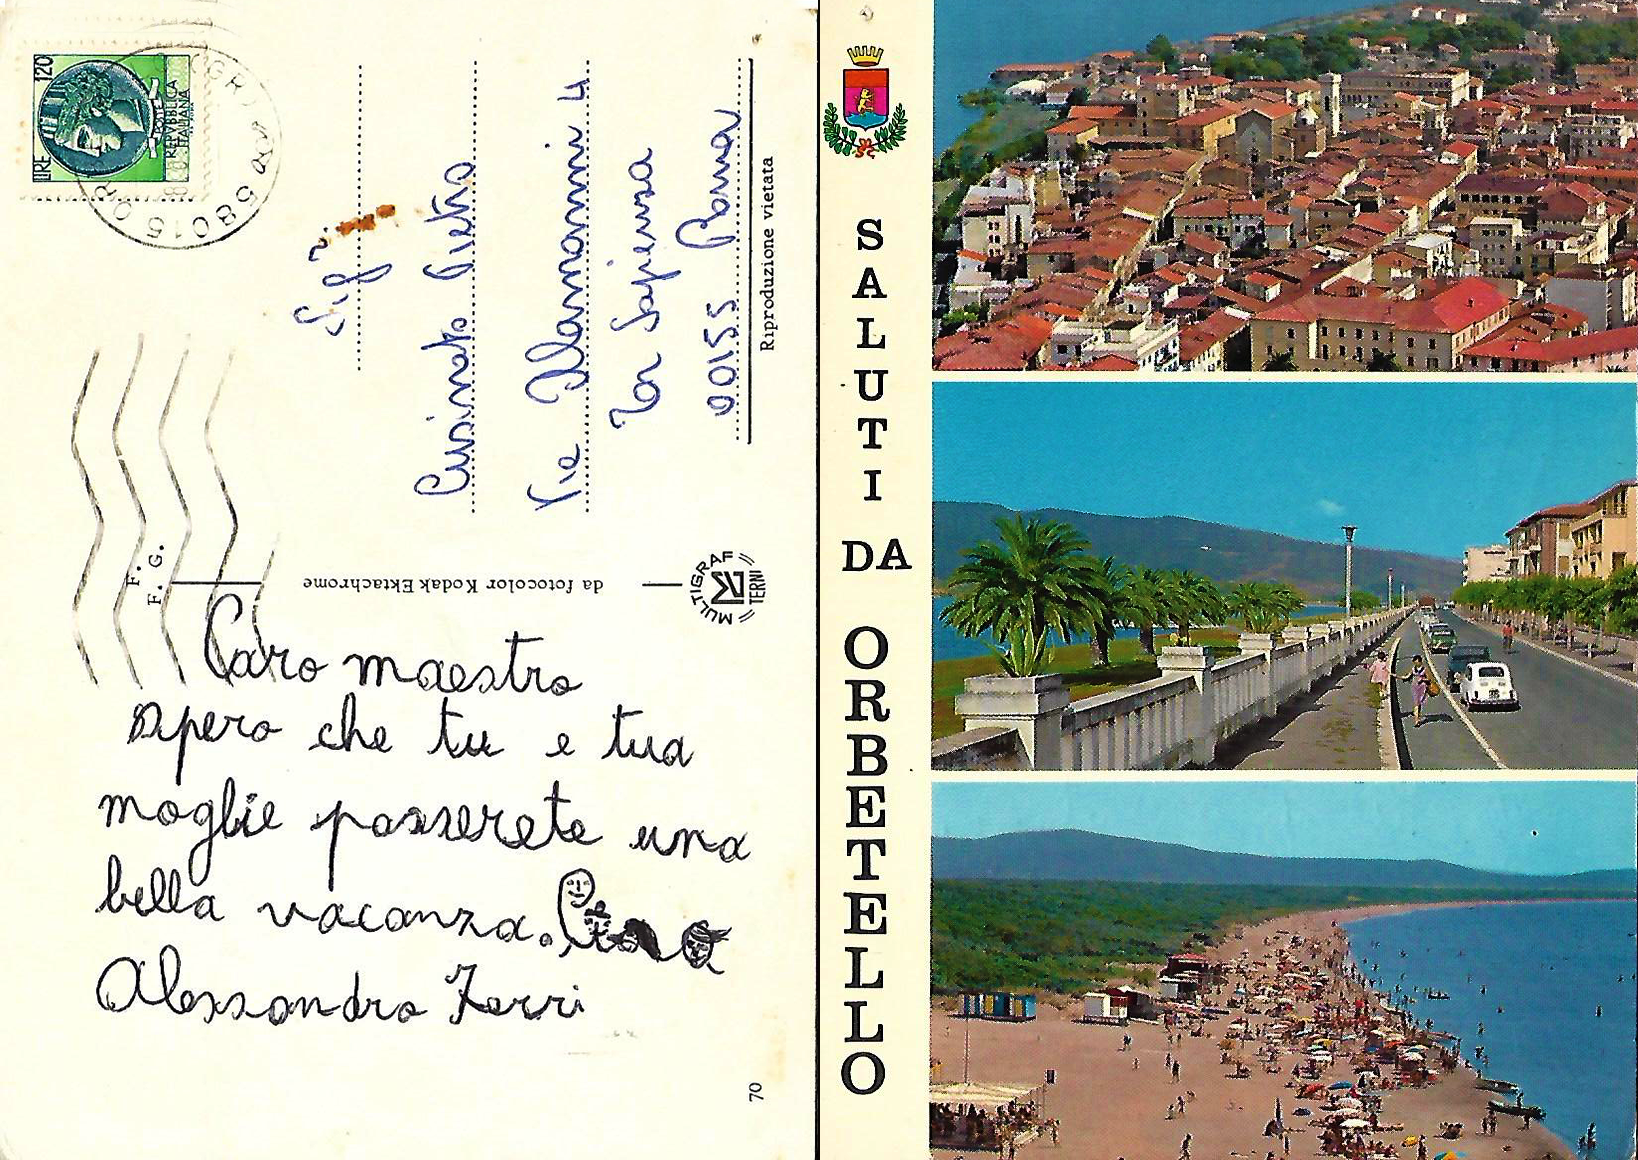 LIRE 120
POSTE
REPVBBLICA
ITALIANA
58015 OR
Sig.
Cusinato Pietro
Via
La Sapienza
00155 Roma
Riproduzione vietata
F. G.
F.
da fotocolor Kodak Ektachrome
MULTIGRAF
TERNI
Caro maestro
spero che tu e tua
moglie passerete una
bella vacanza.
Alessandro Ferri
70
SALUTI
DA
ORBETELLO